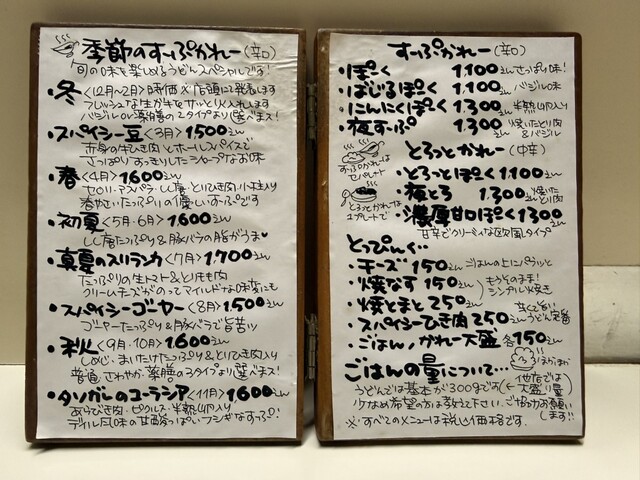 季節のすーぷかれー(辛口)
旬の味を楽しめるうどんスペシャルです!
・冬<12月~2月>時価※店頭に発表します
フレッシュな生カキをサッと火入れします
バジルor薬膳の2タイプより選べます!
・スパイシー豆<3月>1500えん
赤身の牛ひき肉とホールスパイスで
さっぱりすっきりしたシャープなお味
・春<4月>1600えん
セロリ・アスパラ・しし唐・とりひき肉・小柱入り
春やさいたっぷりの優しいすーぷです
・初夏<5月・6月>1,600えん
しし唐たっぷり&豚バラの脂がうま♥
・真夏のスリランカ<7月>1,700えん
たっぷりの生トマト&とりもも肉
クリームチーズがのってマイルドな味変にも
・スパイシーゴーヤー<8月>1500えん
ゴーヤーたっぷり&豚バラで旨苦ッ
・秋<9月、10月>1,600えん
しめじ・まいたけたっぷり&とりひき肉入り
普通、さわやか、薬膳の3タイプより選べます!
・タソガレのユーラシア<11月>1,600えん
あらびき肉・ピクルス・半熟卵入り
ディル風味の甘酸っぱいフシギなすーぷ!
すーぷかれー(辛口)
・ぽーく 1,100えん さっぱり味!
・ばじるぽーく 1,100えん バジル味
・にんにくぽーく 1,300えん 半熟卵入り
・夜すーぷ 1,300えん 焼いたとり肉&バジル
すーぷかれーはセパレート
とろっとかれー(中辛)
・とろっとぽーく 1,100えん
・夜とろ 1,300えん 焼いたとり肉
とろっとかれーは1プレートで
・濃厚甘口ぽーく 1300えん
甘辛でクリーミィな欧風タイプ
とっぴんぐ…
・チーズ 150えん ごはんの上にパラッと
・焼なす 150えん
・焼とまと 250えん
もうそのまま!シンプル焼き
・スパイシーひき肉 250えん 甘くて旨い うどん定番
・ごはん/かれー大盛 各150えん
ほかほか
ごはんの量について…
うどんでは基本が300gです(←他店では大盛り量)
少なめ希望の方は教えて下さい。ご協力お願いします!!
※すべてのメニューは税込価格です.